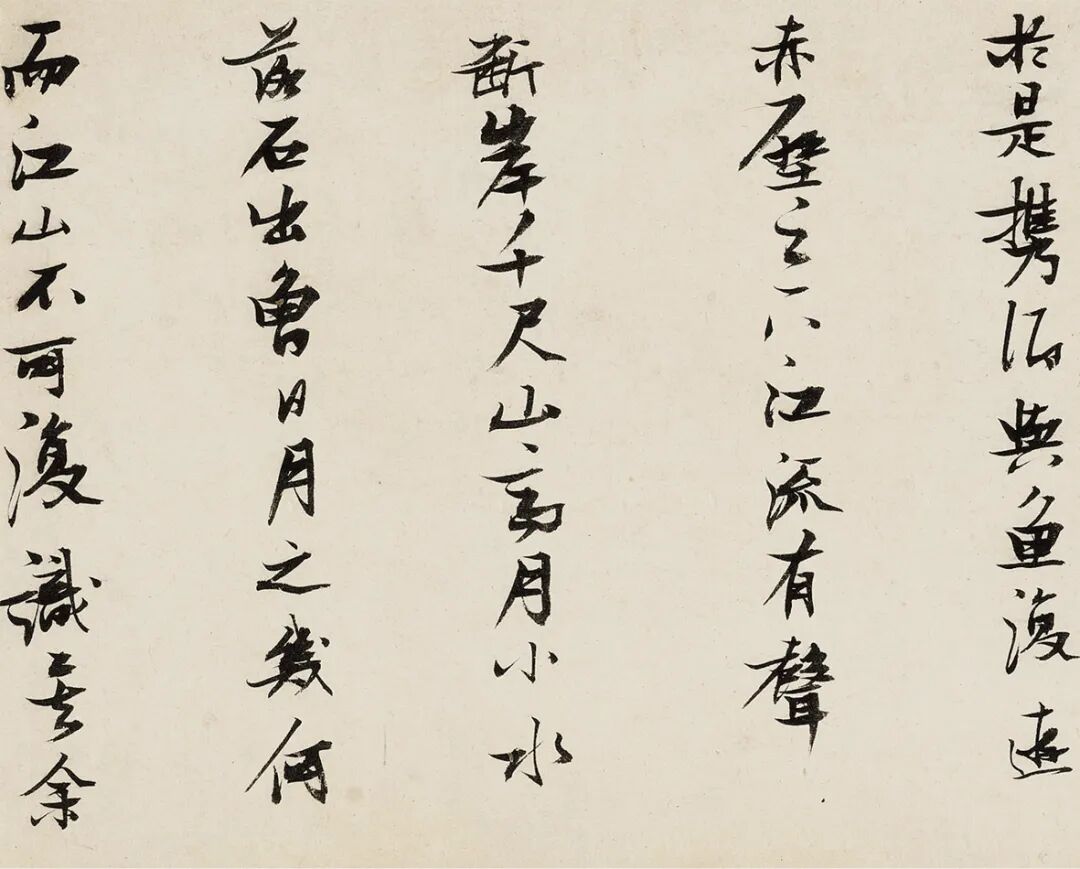 於是攜酒與魚復遊
赤壁之下江流有聲
斷岸千尺山高月小水
落石出曾日月之幾何
而江山不可復識矣余